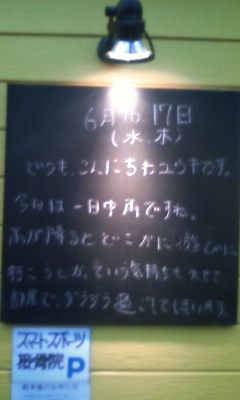 6月16.17日
(水.木)
どうも、こんにちわユウキです。
今日は一日中雨ですね。
雨が降るとどこかに遊びに
行こうとか、ていう気持ちも失せて
部屋で、ダラダラ過ごしてしまいます。
スマートスポーツ
接骨院 P